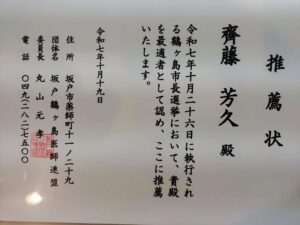 推薦状
齊藤 芳久 殿
令和七年十月二十六に執行され
る鶴ヶ島市長選挙において、貴殿
を最適者として認め、ここに推薦
いたします。
令和七年十月十九日
住所 坂戸市薬師町十一ノ二十九
団体名 坂戸鶴ヶ島医師連盟
委員長 丸山元孝
電話 〇四九(二八二)七五〇〇